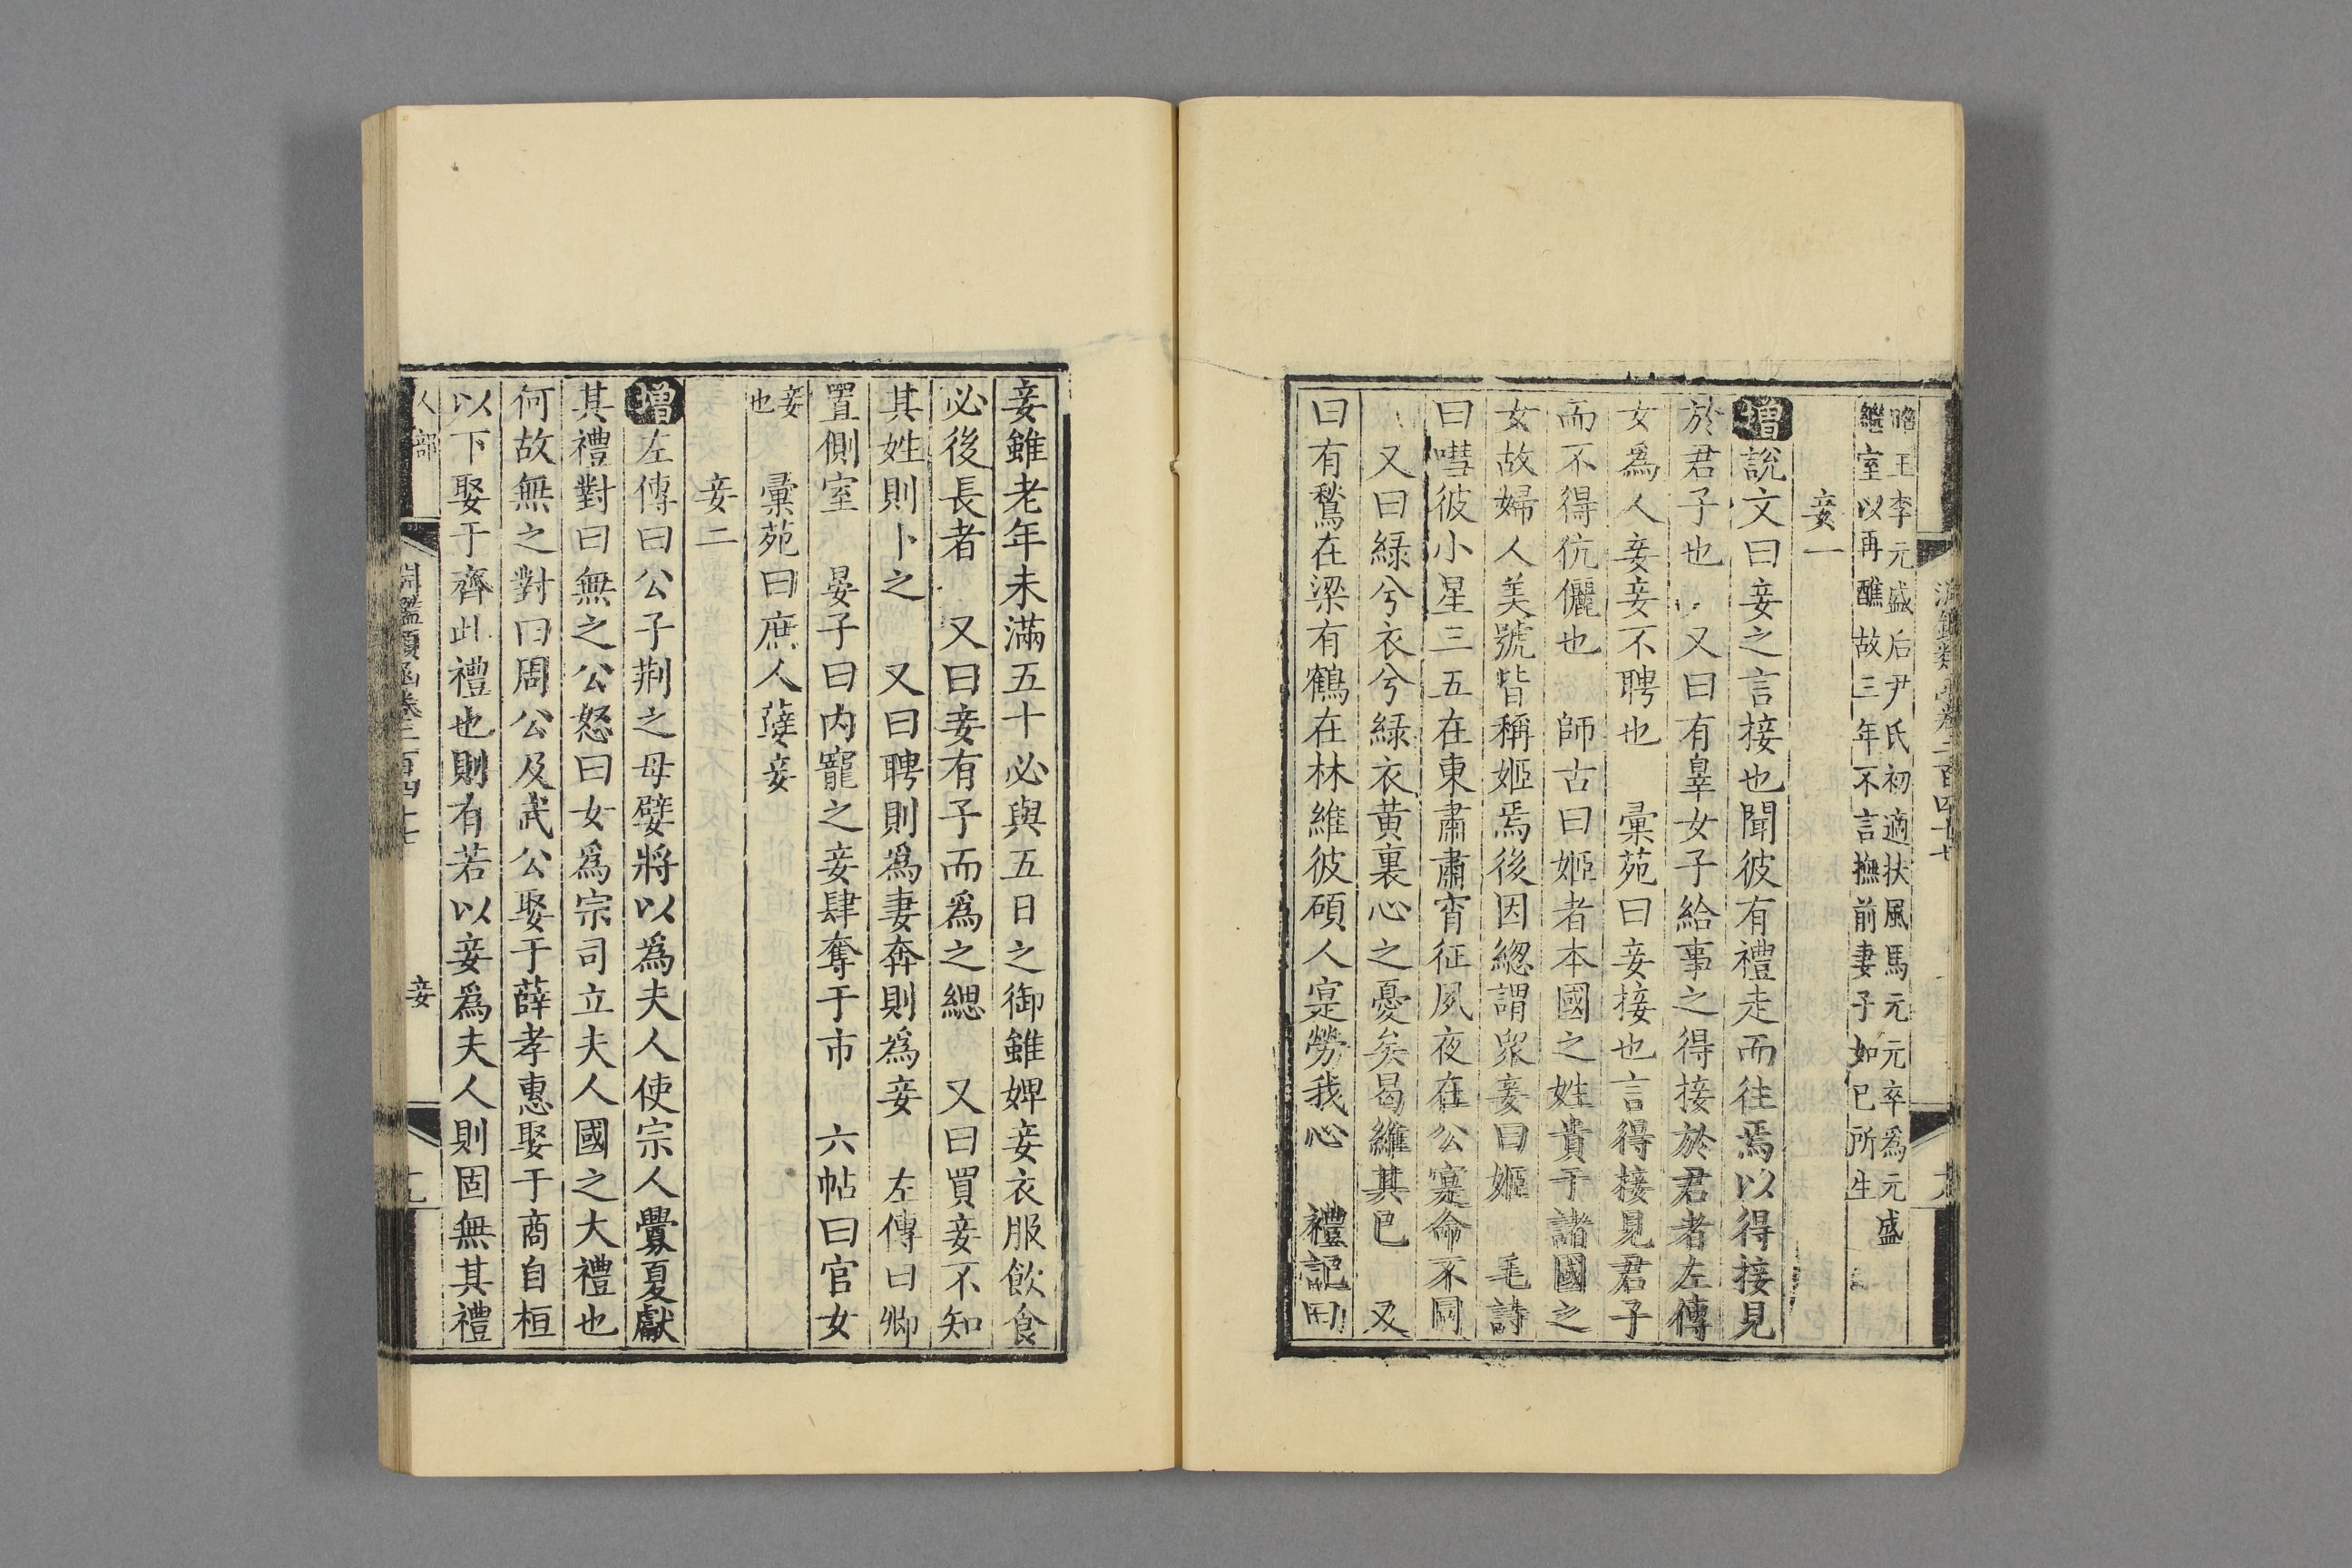 昭王李元盛后尹氏初適扶風馬元元卒為元盛
繼室以再醮故三年不言撫前妻子如已所生
妾一
增說文曰妾之言接也聞彼有禮走而往焉以得接見
於君子也 又曰有辠女子給事之得接於君者左傳
女爲人妾妾不聘也 彙苑曰妾接也言得接見君子
而不得伉儷也 師古曰姬者本國之姓貴于諸國之
女故婦人美號皆稱姬焉後因緫謂衆妾曰姬 毛詩
曰嘒彼小星三五在東肅肅宵征夙夜在公寔命不同
又曰緑兮衣兮緑衣黄裏心之憂矣曷維其已 又
曰有鶖在梁有鶴在林維彼碩人寔勞我心 禮記曰
妾雖老年未滿五十必與五日之御雖婢妾衣服飲食
必後長者 又曰妾有子而爲之緦 又曰買妾不知
其姓則卜之 又曰聘則爲妻奔則爲妾 左傳曰卿
置側室 晏子曰内寵之妾肆奪于市 六帖曰官女
妾也 彙苑曰庶人孽妾
妾二
增左傳曰公子荆之母嬖將以爲夫人使宗人釁夏獻
其禮對曰無之公怒曰女爲宗司立夫人國之大禮也
何故無之對曰周公及武公娶于薛孝惠娶于商自桓
以下娶于齊此禮也則有若以妾爲夫人則固無其禮
人部
淵鑑類函卷二百四十七
妾
十九